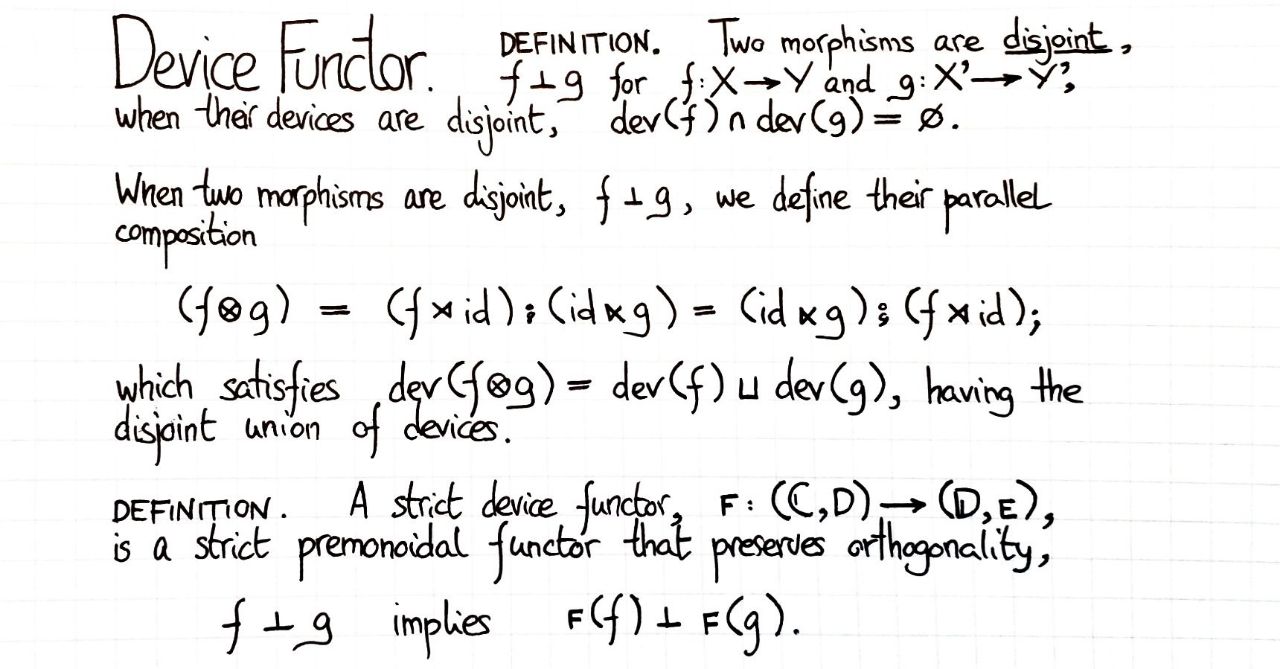 Device Functor. DEFINITION. Two morphisms are disjoint,
f ⊥ g for f: X → Y and g: X' → Y',
when their devices are disjoint, dev(f) ∩ dev(g) = ∅.
When two morphisms are disjoint, f ⊥ g, we define their parallel
composition
(f ⊗ g) = (f ⋊ id) ⨾ (id ⋉ g) = (id ⋉ g) ⨾ (f ⋊ id);
which satisfies dev(f ⊗ g) = dev(f) ⊔ dev(g), having the
disjoint union of devices.
DEFINITION. A strict device functor, F: (ℂ, D) → (𝔻, E),
is a strict premonoidal functor that preserves orthogonality,
f ⊥ g implies F(f) ⊥ F(g).